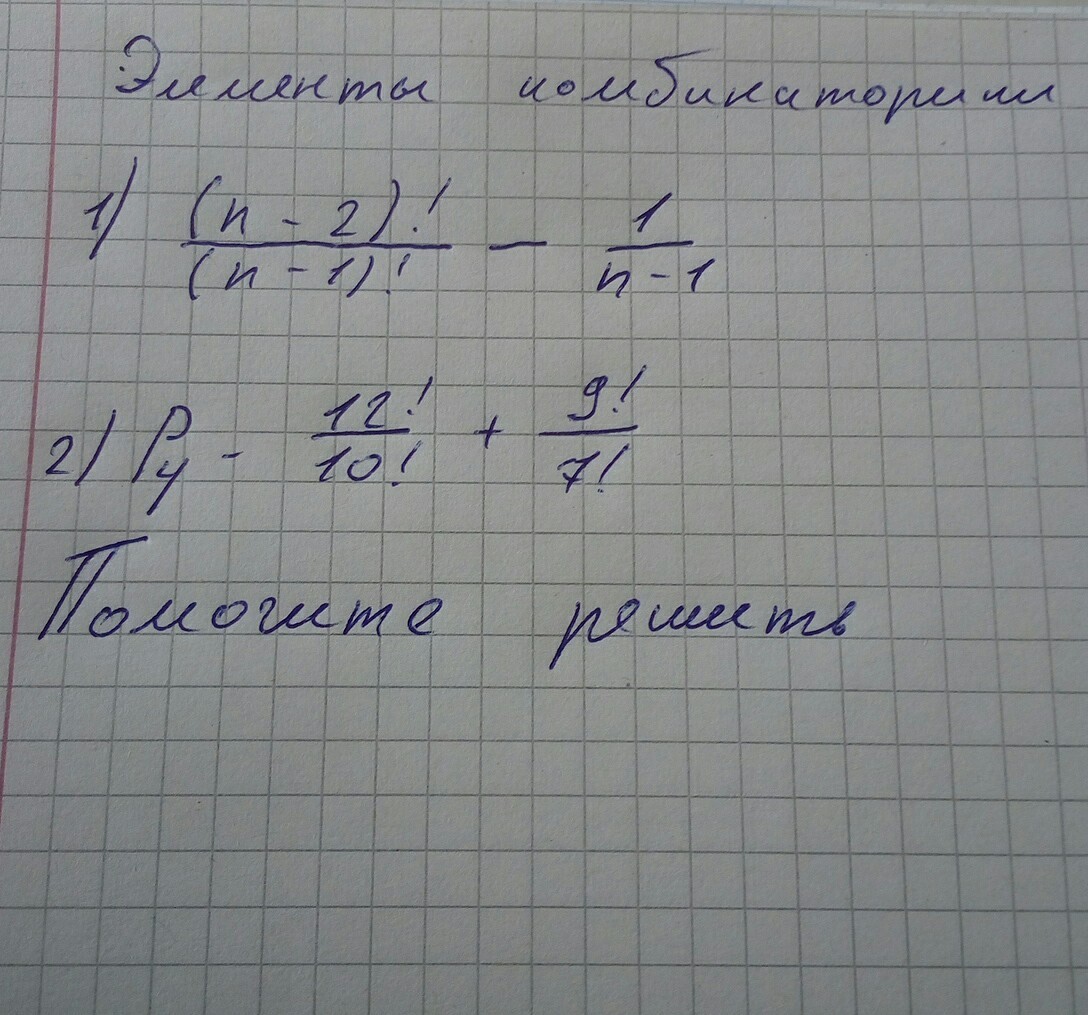 Элементы комбинаторики
1) (n - 2)! / (n - 1)! - 1 / n - 1
2) Pу - 12! / 10! + 9! / 7!
Помогите решить